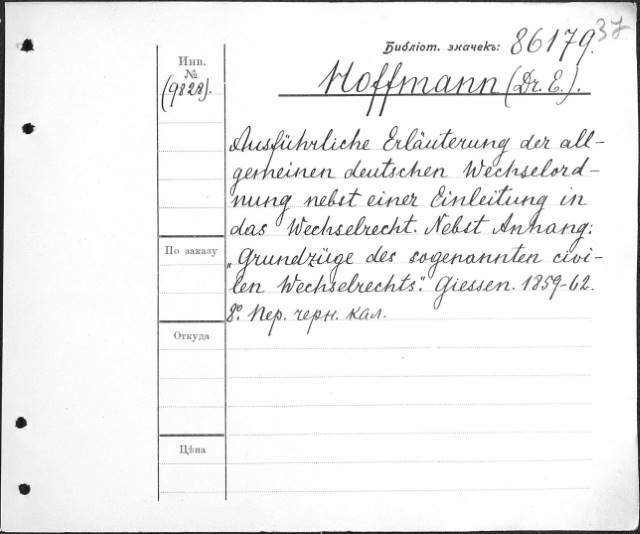 Библіот. значекъ: 86179.
37
Инв.
№
(9828).
Hoffmann (Dr. E.).
Ausführliche Erläuterung der all-
gemeinen deutschen Wechselord-
nung nebst einer Einleitung in
das Wechselrecht. Nebst Anhang:
„Grundzüge des sogenannten civi-
len Wechselrechts". Giessen. 1859-62.
8º. Пер. черн. кал.
По заказу
Откуда
Цѣна